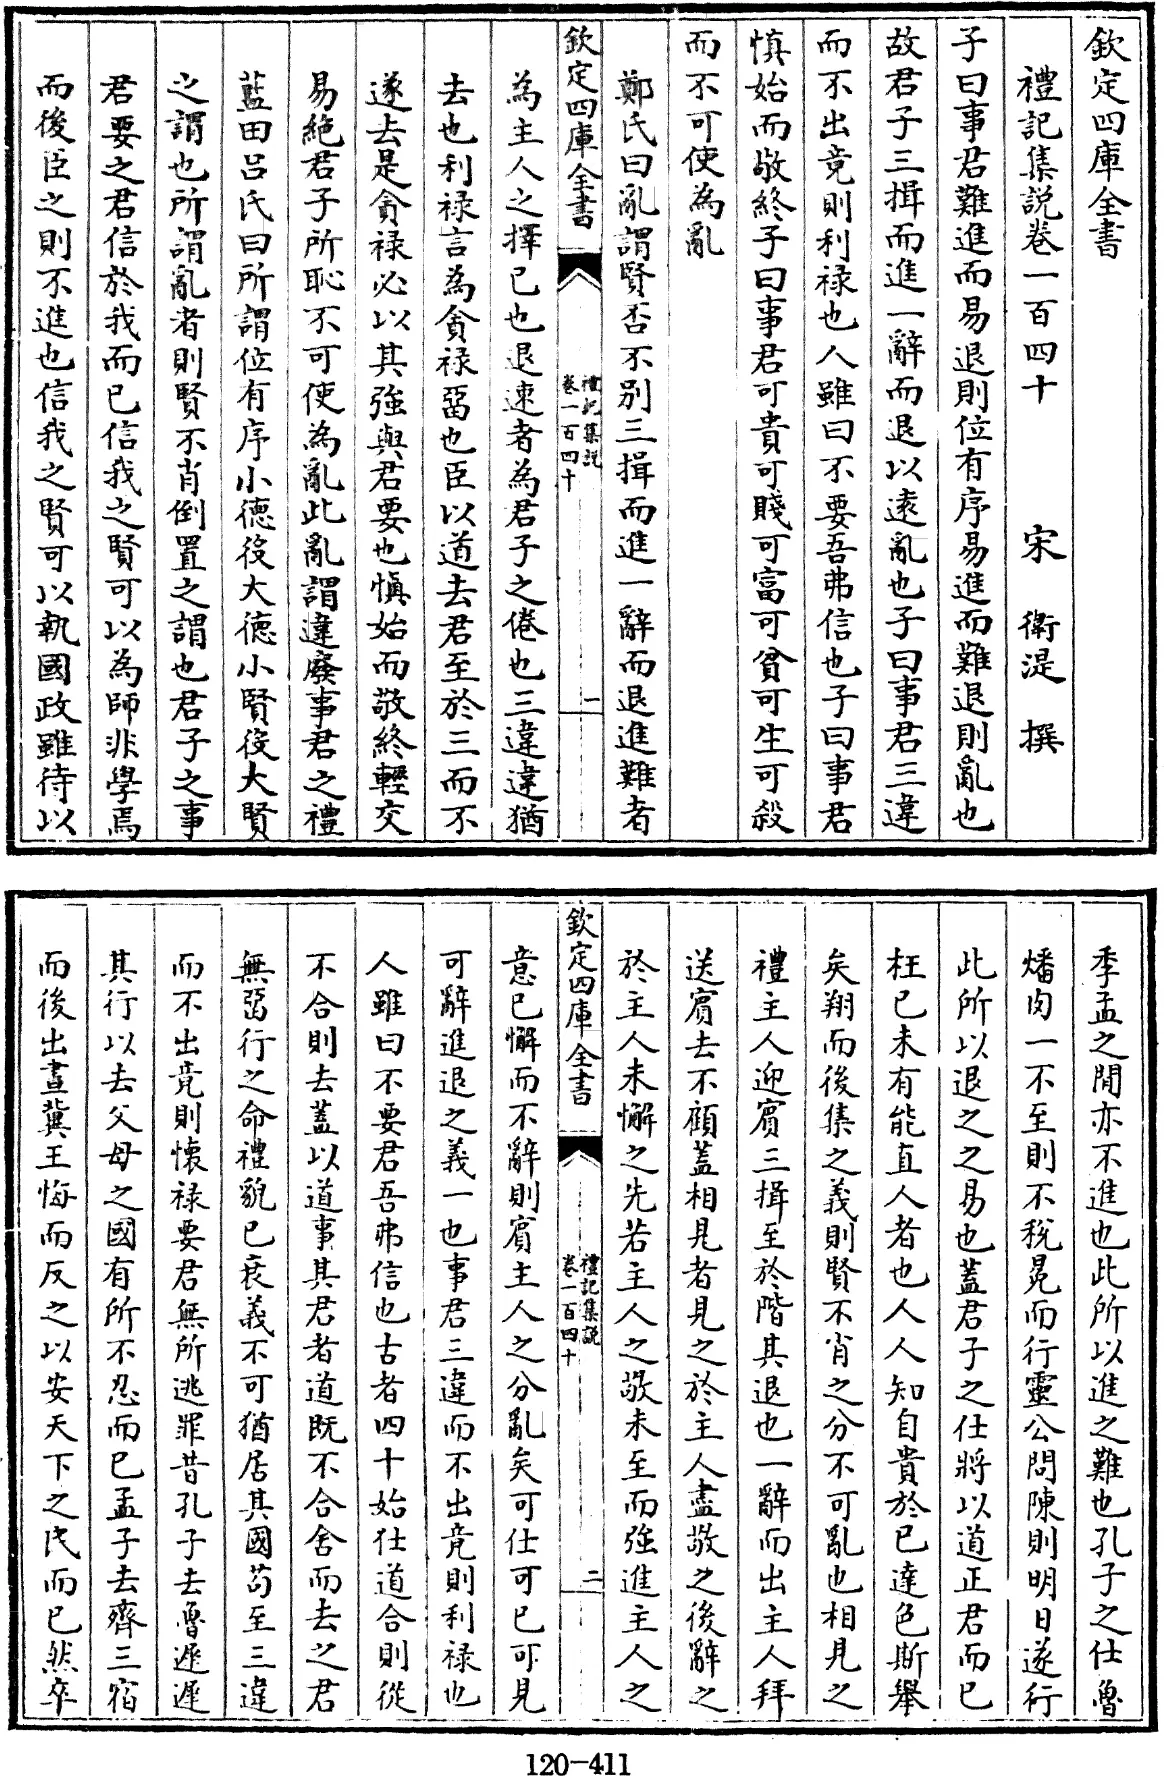 欽定四庫全書
禮記集説卷一百四十　宋　衛湜　撰
子曰事君難進而易退則位有序易進而難退則亂也
故君子三揖而進一辭而退以逺亂也子曰事君三違
而不出竟則利禄也人雖曰不要吾弗信也子曰事君
慎始而敬終子曰事君可貴可賤可富可貧可生可殺
而不可使為亂
鄭氏曰亂謂賢否不别三揖而進一辭而退進難者
欽定四庫全書
禮記集説
卷一百四十
一
為主人之擇已也退速者為君子之倦也三違違猶
去也利禄言為貪禄畱也臣以道去君至於三而不
遂去是貪禄必以其強與君要也慎始而敬終輕交
易絶君子所恥不可使為亂此亂謂違廢事君之禮
藍田吕氏曰所謂位有序小德役大德小賢役大賢
之謂也所謂亂者則賢不肖倒置之謂也君子之事
君要之君信於我而已信我之賢可以為師非學焉
而後臣之則不進也信我之賢可以執國政雖待以
季孟之閒亦不進也此所以進之難也孔子之仕魯
燔肉一不至則不税冕而行靈公問陳則明日遂行
此所以退之之易也蓋君子之仕將以道正君而已
枉已未有能直人者也人人知自貴於已達色斯舉
矣翔而後集之義則賢不肖之分不可亂也相見之
禮主人迎賓三揖至於階其退也一辭而出主人拜
送賓去不顧蓋相見者見之於主人盡敬之後辭之
於主人未懈之先若主人之敬未至而強進主人之
欽定四庫全書
禮記集説
卷一百四十
二
意已懈而不辭則賓主人之分亂矣可仕可已可見
可辭進退之義一也事君三違而不出竟則利禄也
人雖曰不要君吾弗信也古者四十始仕道合則從
不合則去蓋以道事其君者道既不合舍而去之君
無畱行之命禮貌已衰義不可猶居其國茍至三違
而不出竟則懐禄要君無所逃罪昔孔子去魯遲遲
其行以去父母之國有所不忍而已孟子去齊三宿
而後出晝冀王悔而反之以安天下之民而已然卒
120-411